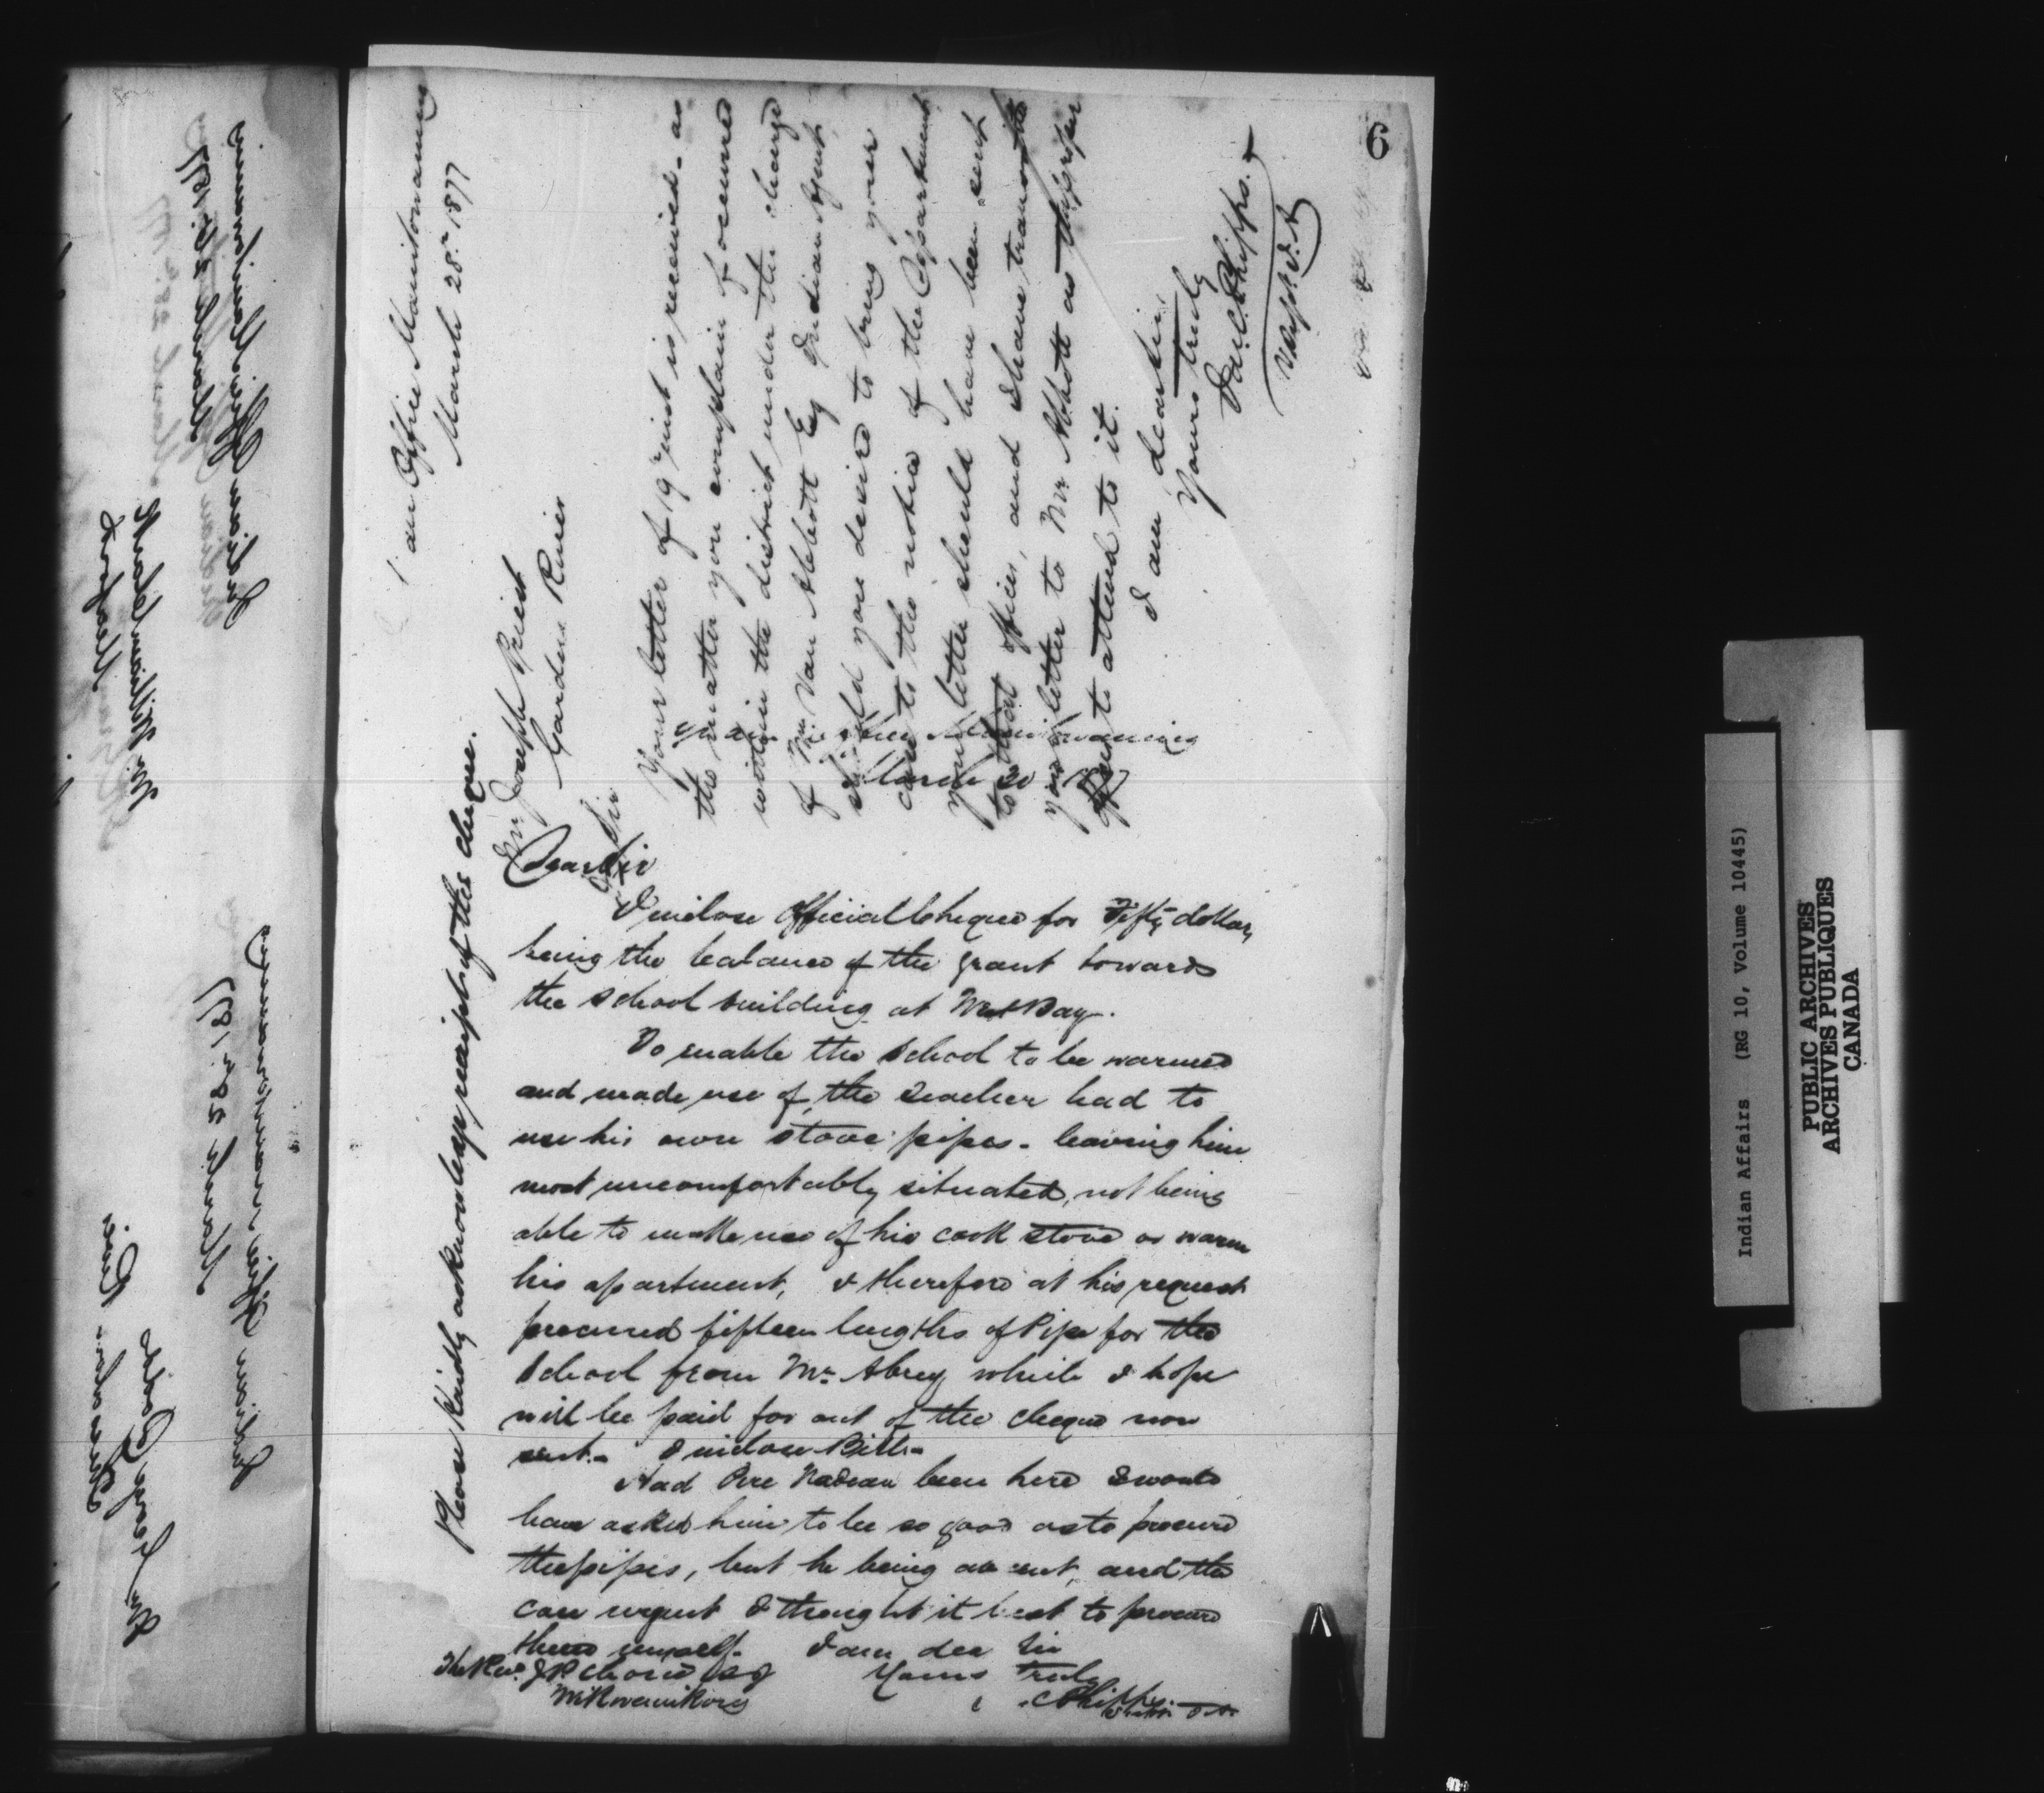 6
Office Manitowaning
March 28th 1877
Mr Joseph Priest
Garden River
Dear Sir
Your letter of 19th inst is received - as
the matter you complain of occurred
within the district under the charge
of Wm Van Abbott Esq Indian Agent
should you desire to bring your
case to the notice of the Department
your letter should have been sent
to that officer, and I have transmitted
your letter to Mr Abbott as the proper
officer to attend to it.
I am dear sir,
Yours truly
J.C. Phipps.
V. Supt. I.A
Indian Office Manitowaning
March 20 1877
Dear Sir
I inclose official Cheque for Fifty dollars,
being the balance of the grant towards
the School building at West Bay.
To enable the School to be warmed
and made use of, the teacher had to
use his own stove pipes - leaving him
most uncomfortably situated, not being
able to make use of his cook stove or warm
his apartment, I therefore at his request
procured fifteen lengths of Pipe for the
School from Mr. Abrey which I hope
will be paid for out of the cheque now
sent. - I inclose Bill -
Had Pere Nadeau been here I would
have asked him to be so good as to procure
the pipes, but he being absent, and the
case urgent I thought it best to procure
them myself. I am dear Sir
Yours Truly
C Phipps.
The Revd. J P Choné
Wikwemikong
Please kindly acknowledge receipt of the cheque.
Indian Office Manitowaning
March 28th 1877
Mr William Clark
Meaford
Indian Office Manitowaning
March 28th 1877
Mr George
River
Indian Affairs (RG 10, Volume 10445)
PUBLIC ARCHIVES
ARCHIVES PUBLIQUES
CANADA